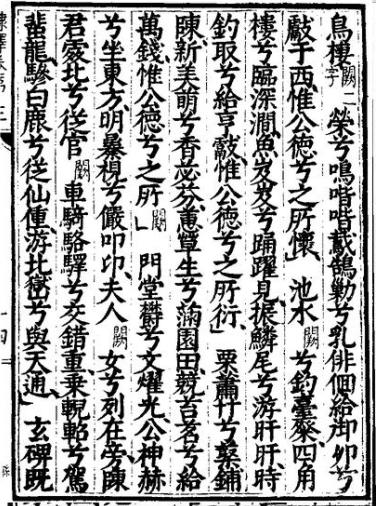 鳥棲闕二字榮兮鳴喈喈載鵠勦兮乳徘徊給御卵兮
獻于西惟公德兮之所懷 池水闕兮釣臺粲四角
樓兮臨深澗魚岌岌兮踊躍見振鱗尾兮游旰旰時
釣取兮給亨獻惟公德兮之所衎 栗蕭竹兮蓼鋪
陳新美萌兮香苾芬蕙生兮滿園田競苔茗兮給
萬錢惟公德兮之所闕 門堂鬱兮文燿光公神赫
兮坐東方明暴視兮儼卬卬夫人闕女兮列在旁陳
君處北兮從官闕車騎駱驛兮交錯重乘輗軺兮駕
蜚龍驂白鹿兮從仙僮游北嶽兮與天通 玄碑既
隸釋卷第三
十四